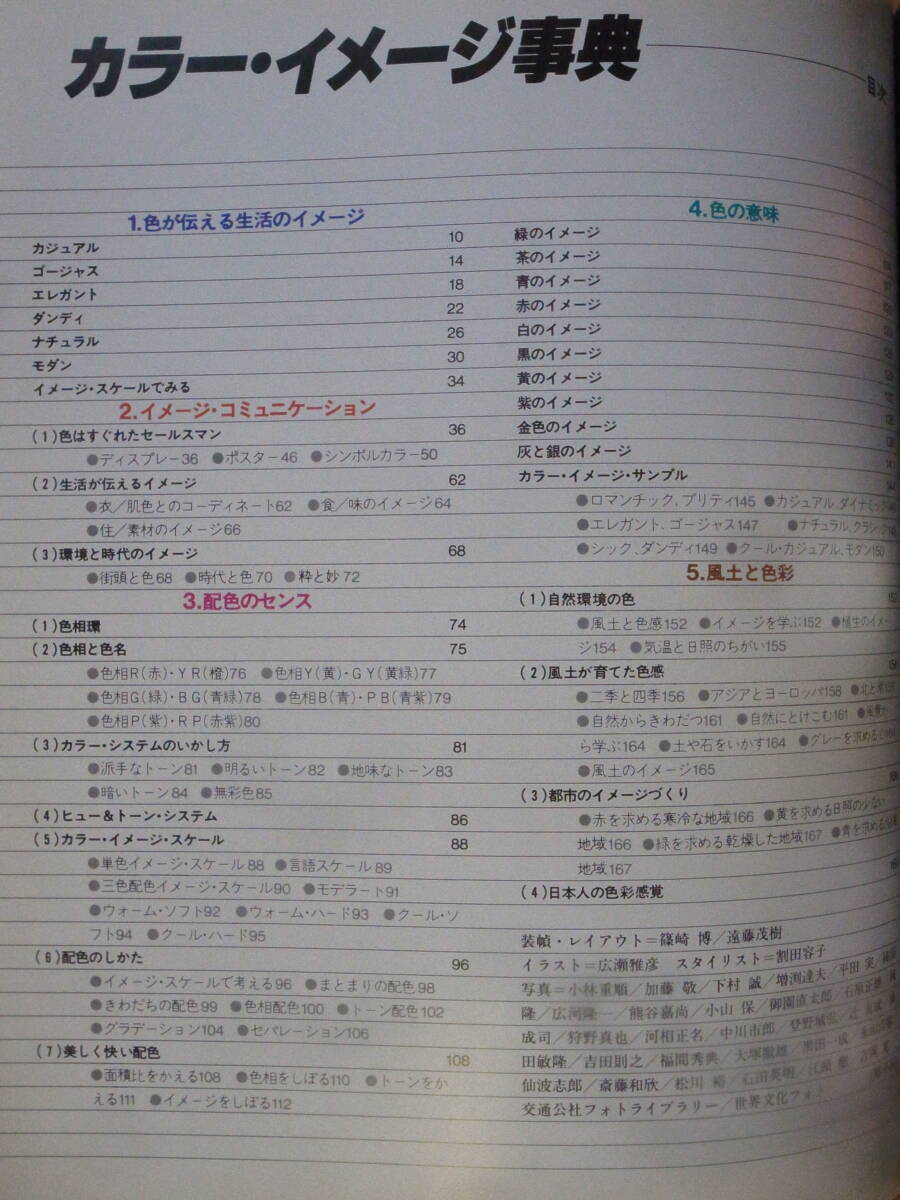 カラー・イメージ事典
目次
1.色が伝える生活のイメージ
カジュアル 10
ゴージャス 14
エレガント 18
ダンディ 22
ナチュラル 26
モダン 30
イメージ・スケールでみる 34
2.イメージ・コミュニケーション
(1)色はすぐれたセールスマン 36
●ディスプレー36 ●ポスター46 ●シンボルカラー50
(2)生活が伝えるイメージ 62
●衣／肌色とのコーディネート62 ●食／味のイメージ64
●住／素材のイメージ66
(3)環境と時代のイメージ 68
●街頭と色68 ●時代と色70 ●粋と妙72
3.配色のセンス
(1)色相環 74
(2)色相と色名 75
●色相R(赤)・YR(橙)76 ●色相Y(黄)・GY(黄緑)77
●色相G(緑)・BG(青緑)78 ●色相B(青)・PB(青紫)79
●色相P(紫)・RP(赤紫)80
(3)カラー・システムのいかし方 81
●派手なトーン81 ●明るいトーン82 ●地味なトーン83
●暗いトーン84 ●無彩色85
(4)ヒュー＆トーン・システム 86
(5)カラー・イメージ・スケール 88
●単色イメージ・スケール88 ●言語スケール89
●三色配色イメージ・スケール90 ●モデラート91
●ウォーム・ソフト92 ●ウォーム・ハード93 ●クール・ソ
フト94 ●クール・ハード95
(6)配色のしかた 96
●イメージ・スケールで考える96 ●まとまりの配色98
●きわだちの配色99 ●色相配色100 ●トーン配色102
●グラデーション104 ●セパレーション106
(7)美しく快い配色 108
●面積比をかえる108 ●色相をしぼる110 ●トーンをか
える111 ●イメージをしぼる112
4.色の意味
緑のイメージ
茶のイメージ
青のイメージ
赤のイメージ
白のイメージ
黒のイメージ
黄のイメージ
紫のイメージ
金色のイメージ
灰と銀のイメージ
カラー・イメージ・サンプル
●ロマンチック、プリティ145 ●カジュアル、ダイナミック
●エレガント、ゴージャス147 ●ナチュラル、クラシック
●シック、ダンディ149 ●クール・カジュアル、モダン150
5.風土と色彩
(1)自然環境の色 152
●風土と色感152 ●イメージを学ぶ152 ●植生のイメー
ジ154 ●気温と日照のちがい155
(2)風土が育てた色感 156
●二季と四季156 ●アジアとヨーロッパ158 ●北と
●自然からきわだつ161 ●自然にとけこむ161
ら学ぶ164 ●土や石をいかす164 ●グレーを求める
●風土のイメージ165
(3)都市のイメージづくり
●赤を求める寒冷な地域166 ●黄を求める日照の少ない
地域166 ●緑を求める乾燥した地域167 ●青を求める
地域167
(4)日本人の色彩感覚
装幀・レイアウト＝篠崎 博／遠藤茂樹
イラスト＝広瀬雅彦 スタイリスト＝割田容子
写真＝小林重順／加藤 敬／下村 誠／増渕達夫／平田 実
隆／広河隆一／熊谷嘉尚／小山 保／御園直太郎
成司／狩野真也／河相正名／中川市郎
田敏隆／吉田則之／福間秀典／大塚
仙波志郎／斎藤和欣／松川 裕／石田英明
交通公社フォトライブラリー／世界文化フォト